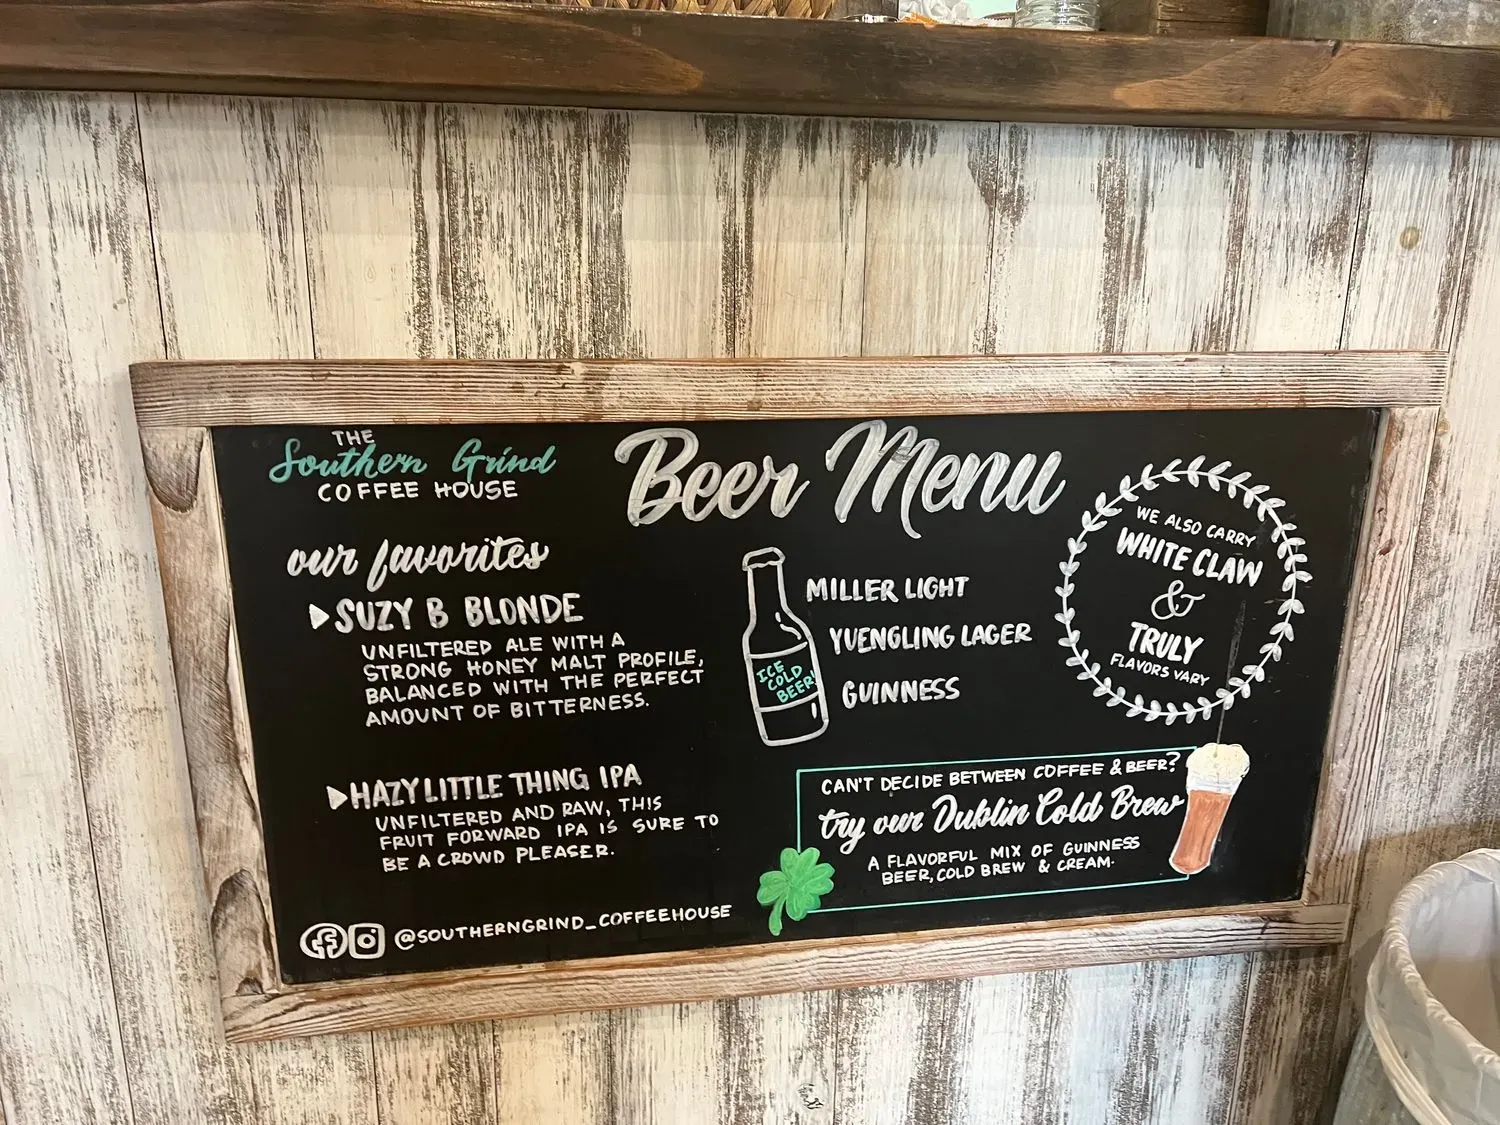 THE
Southern Grind
COFFEE HOUSE
Beer Menu
our favorites
SUZY B BLONDE
UNFILTERED ALE WITH A
STRONG HONEY MALT PROFILE,
BALANCED WITH THE PERFECT
AMOUNT OF BITTERNESS.
HAZY LITTLE THING IPA
UNFILTERED AND RAW, THIS
FRUIT FORWARD IPA IS SURE TO
BE A CROWD PLEASER.
@SOUTHERNGRIND_COFFEEHOUSE
ICE
COLD
BEER!
MILLER LIGHT
YUENGLING LAGER
GUINNESS
WE ALSO CARRY
WHITE CLAW
&
TRULY
FLAVORS VARY
CAN'T DECIDE BETWEEN COFFEE & BEER?
try our Dublin Cold Brew
A FLAVORFUL MIX OF GUINNESS
BEER, COLD BREW & CREAM.